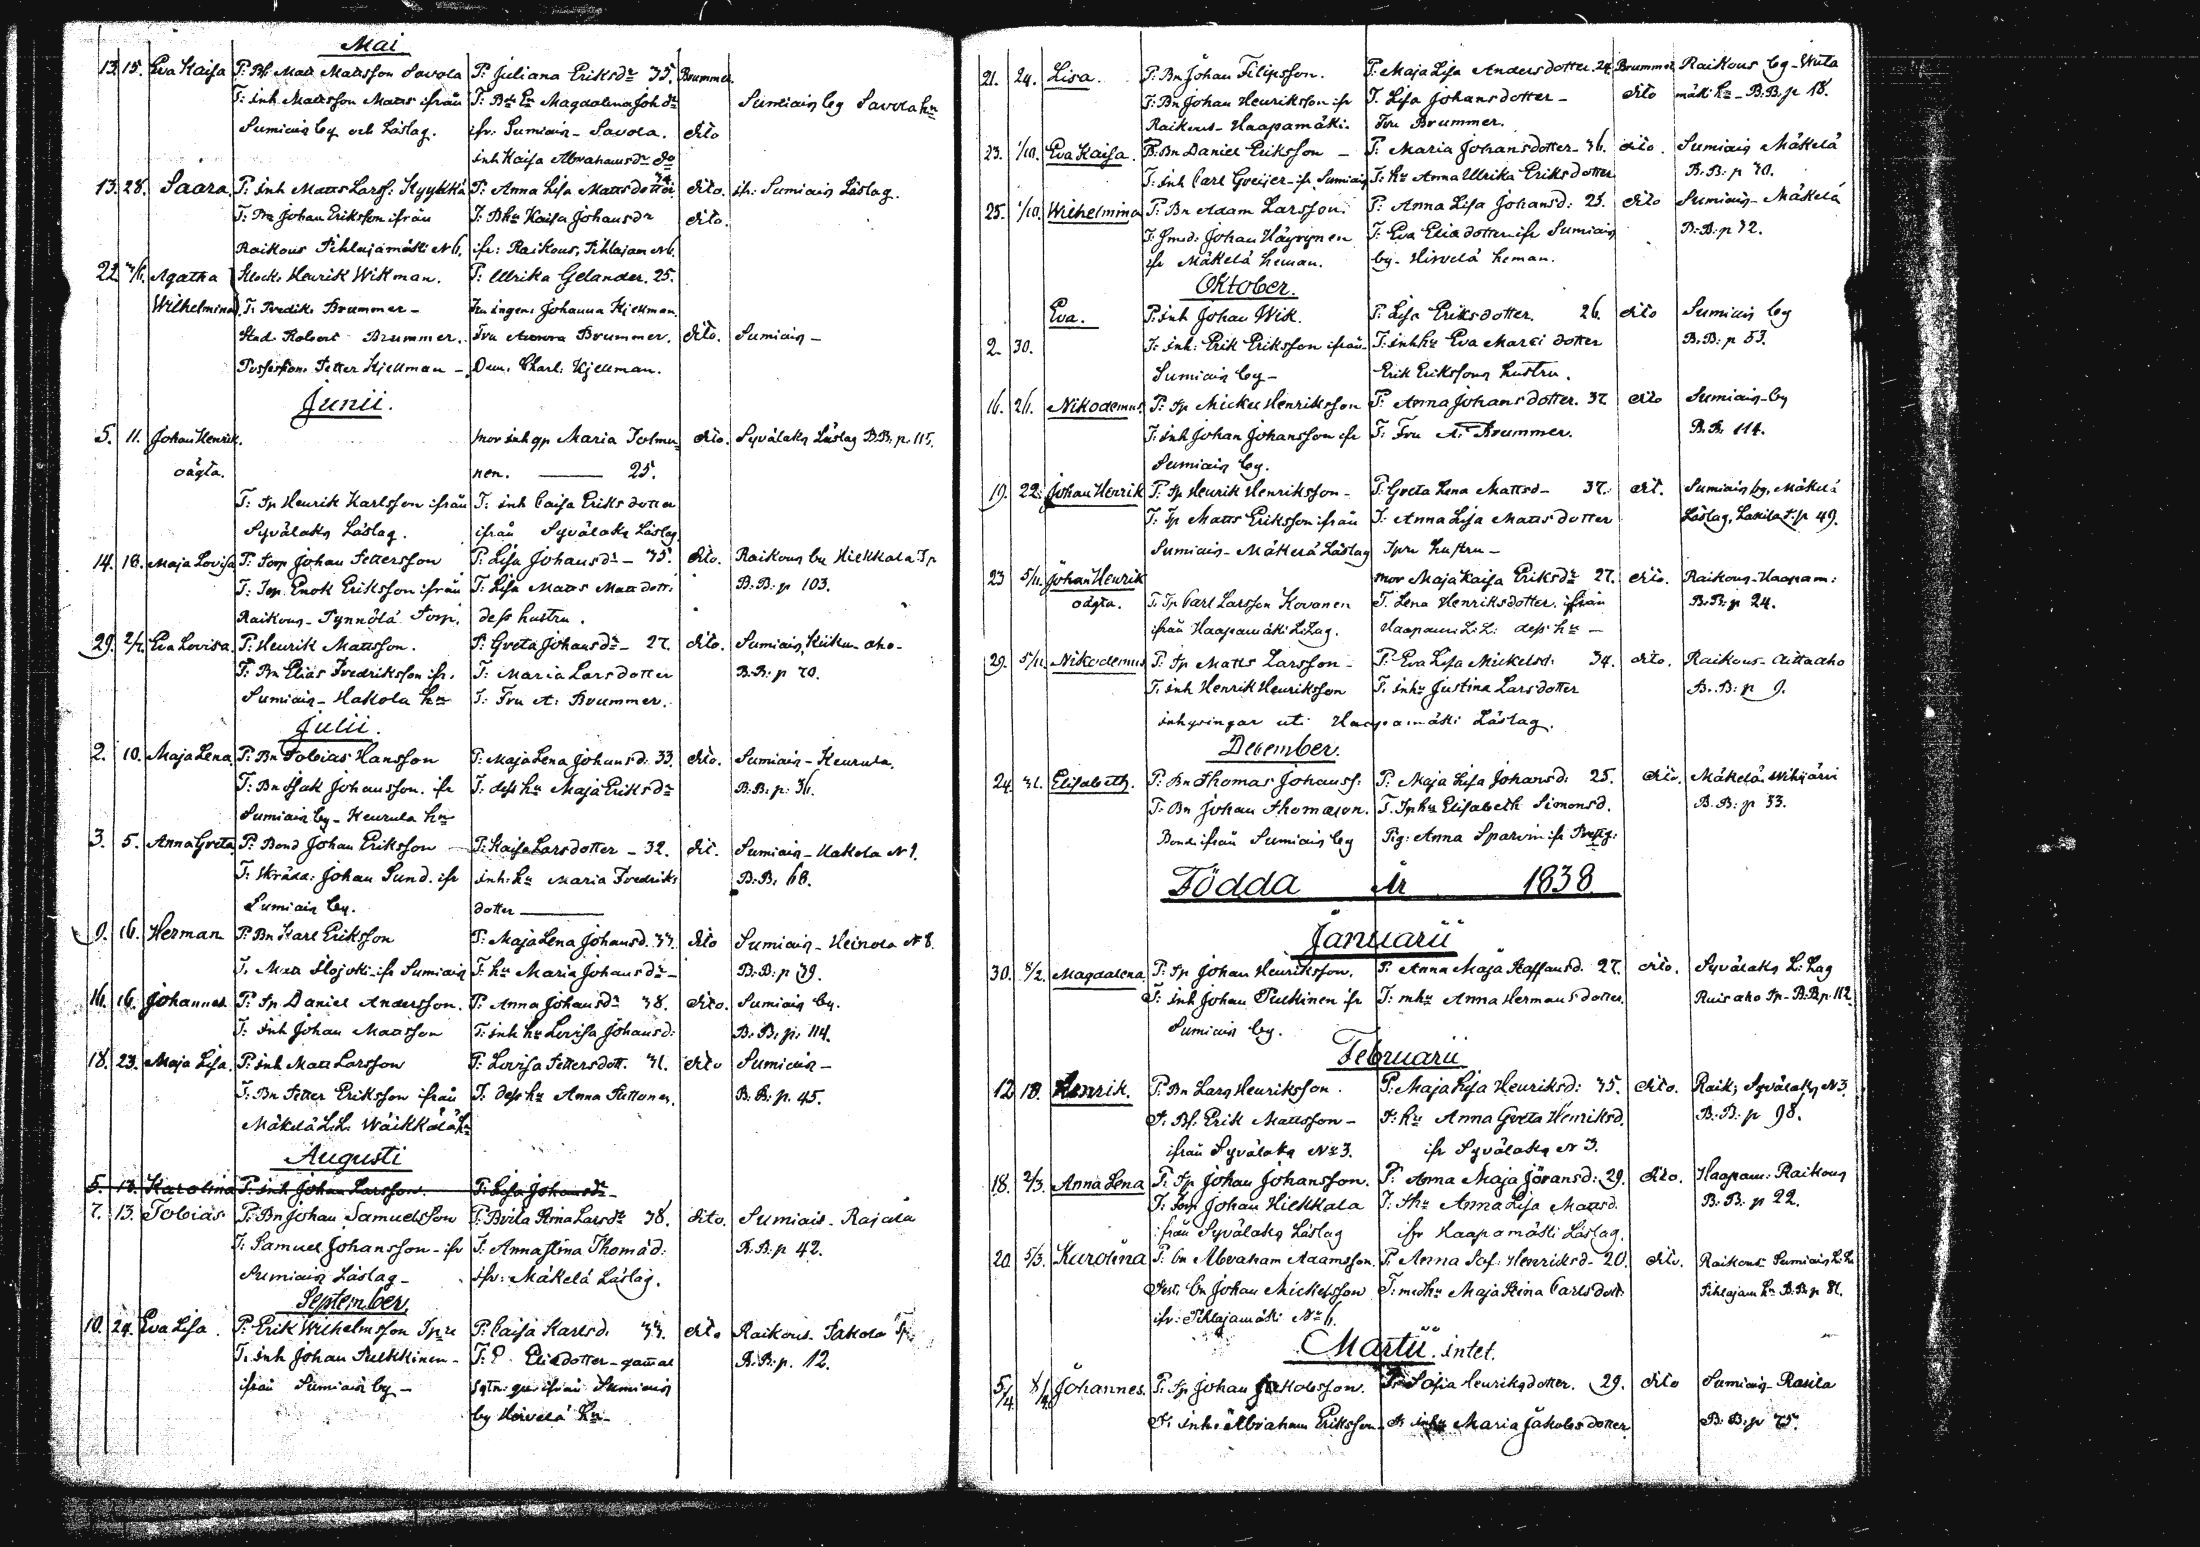 Mai
13. 15. Eva Kaisa P: Bf. Matt Mattsson Savola P: Juliana Eriksdr 35. Brummer
T: inh Mattsson Matts ifrån T: Bdr hr Magdalena Joh dr Sumiais by Savola hn
Sumiais by och Låslag. ifr: Sumiais - Savola. dito
inh Kaisa Abrahamsdr do
13. 28. Saara. P: inh Matts Larss: Kyykkä P: Anna Lisa Mattsdotter 34. dito. ifr: Sumiais Låslag.
T: Bn Johan Eriksson ifrån T: Bhr Kaisa Johansdr dito.
Raikous Pihlajamäki N 6. ifr: Raikous, Pihlajam N 6.
22 Agatha Klock. Henrik Wikman. P: Ulrika Gelander. 25.
Wilhelmina T: Predik. Brummer - Johanna Kjellman.
Stud. Robert Brummer. Fru Aurora Brummer. dito. Sumiais -
Petter Kjellman - Dem. Charl. Kjellman.
Junii.
5. 11. Johan Henrik. mor inh gp Maria Tolmu- dito. Syvälaks Låslag B.B. p. 115.
oägta. nen. 25.
T: Tp Henrik Karlsson ifrån T: inh Caisa Eriksdotter
Syvälaks Låslag. ifrån Syvälaks Låslag
14. 18. Maja Lovisa P: Torp Johan Pettersson P: Lisa Johansdr - 35. dito. Raikous by Hiekkala Tp
T: Torp. Enok Eriksson ifrån T: Lisa Matts Matts dott: B.B: p 103.
Raikous - Pynnölä Torp. dess hustru.
29. 2/7. Eva Lovisa. P: Henrik Mattsson. P: Greta Johansdr - 27. dito. Sumiais, Kiiku- aho -
T: Bn Elias Fredriksson ifr. T: Maria Larsdotter B.B: p 70.
Sumiais - Hakola hn T: Fru A: Brummer.
Julii.
2. 10. Maja Lena P: Bn Tobias Hansson P: Maja Lena Johansd: 33. dito. Sumiais - Keurula.
T: Bn Isak Johansson. ifr T: dess hr Maja Eriksdr B.B: p: 36.
Sumiais by - Keurula hn
3. 5. Anna Greta P: Bond Johan Eriksson P: Kaisa Larsdotter - 32. dit. Sumiais - Hakola N 1.
T: Skräda: Johan Sund. ifr inh: hr Maria Fredriks B.B. 68.
Sumiais by. dotter
9. 16. Herman P: Bn Karl Eriksson P: Maja Lena Johansd. 33. dito Sumiais - Heinola N 8.
T. Matt ifr Sumiais T: hr Maria Johansdr - B.B: p 79.
16. 16. Johannes P: Tp Daniel Andersson. P: Anna Johansdr 38. dito. Sumiais by.
T: inh Johan Mattsson T: inh hr Lovisa Johansd: B.B. p. 114.
18. 23. Maja Lisa P: inh Matts Larsson P: Lovisa Pettersdott. 31. dito Sumiais -
T: Bn Petter Eriksson ifrån T: dess hr Anna B.B. p. 45.
Mäkelä L.L: Wäikkälä hn
Augusti
5. 13. Karolina P: inh Johan Larsson. P: Lisa Johansdr -
7. 13. Tobias P: Bn Johan Samuelsson P: Brita Stina Larsdr 38. dito. Sumiais - Rajala
T: Samuel Johansson - ifr T: Anna Stina Thomæd: B.B: p 42.
Sumiais Låslag - ifr: Mäkelä Låslag.
September.
10. 24. Eva Lisa. P: Erik Wilhelmsson Tpre P: Caisa Karlsd. 33. dito Raikous - Pakola Tp.
T: inh Johan Pulkkinen - T: E. Eliædotter - gamal B.B: p. 12.
ifrån Sumiais by - ifrån Sumiais
by Hirvelä hn -
21. 24. Lisa. P: Bn Johan Filipsson. P: Maja Lisa Andersdotter. 24. Brummer Raikous by - Wuta
T: Bn Johan Henriksson ifr T. Lisa Johansdotter - dito mäki hn - B.B: p 18.
Raikous - Haapamäki. Fru Brummer.
23. 1/10. Eva Kaisa. P: Bn Daniel Eriksson - P: Maria Johansdotter - 36. dito. Sumiais Mäkelä
T: inh Carl Greijer ifr Sumiais T: hr Anna Ulrika Eriksdotter B.B: p 70.
25. 1/10. Wilhelmina P: Bn Adam Larsson. P: Anna Lisa Johansd: 23. dito Sumiais - Mäkelä
T: Smed: Johan Häyrynen T: Eva Eliædotter ifr Sumiais B.B: p 72.
ifr Mäkelä heman. by - Hirvelä heman.
Oktober.
Eva. P: inh Johan Wik. P: Lisa Eriksdotter. 26. dito Sumiais by
2. 30. T: inh: Erik Eriksson ifrån T: inh hr Eva Marci dotter B.B: p 53.
Sumiais by - Erik Erikssons hustru.
16. 26. Nikodemus P: Tp Mickel Henriksson P: Anna Johansdotter. 37. dito Sumiais by
T: inh Johan Johansson ifr T: Fru A: Brummer. B.B. 114.
Sumiais by.
19. 22. Johan Henrik P: Tp Henrik Henriksson - P: Greta Lena Mattsd - 37. dit. Sumiais by, Mäkelä
T: Tp Matts Eriksson ifrån T: Anna Lisa Mattsdotter Låslag, Lakila T. p 49.
Sumiais - Mäkelä Låslag Tprs hustru -
23 5/11. Johan Henrik mor Maja Kaisa Eriksdr 27. dito. Raikous - Haapam:
oägta. T: Tp Carl Larsson Kovanen T. Lena Henriksdotter. ifrån B.B: p 24.
ifrån Haapamäki L.Lag. Haapam: L.L: dess hr -
29. 5/11. Nikodemus P: Tp Matts Larsson - P: Eva Lisa Mickelsd: 34. dito. Raikous - Aittaaho
T: inh Henrik Henriksson T: inhr Justina Larsdotter B.B: p 9.
inhysingar uti Haapamäki Låslag.
December.
24. 31. Elisabeth. P: Bn Thomas Johanss: P: Maja Lisa Johansd: 25. dito. Mäkelä Wihijärvi
T: Bn Johan Thomason. T. Tphr Elisabeth Simonsd. B.B: p 33.
Bond. ifrån Sumiais by Pig: Anna Sparvin ifr Prestg:
Födda År 1838
Januarii
30. 8/2. Magdalena P: Tp Johan Henriksson. P: Anna Maja Staffansd. 27. dito. Syvälaks L: Lag
T: inh Johan Pulkinen ifr T: Anna Hermansdotter. Ruis aho Tp - B.B p. 112.
Sumiais by.
Februarii
12 18. Henrik. P: Bn Lars Henriksson. P: Maja Lisa Henriksd: 35. dito. Raik; Syvälaks N 3.
T: Bf. Erik Mattsson - T: hr Anna Greta Henriksd. B.B: p 98.
ifrån Syvälaks No 3. ifr Syvälaks N 3.
18. 2/3. Anna Lena P: Tp Johan Johansson. P: Anna Maja Göransd: 29. dito. Haapam: Raikous
T: Torp Johan Hiekkala T: Anna Lisa Mattsd. B.B: p 22.
från Syvälaks Låslag ifr Haapamäki Låslag.
20 5/3. Karolina P: bn Abraham Adamsson. P: Anna Sof: Henriksd - 20. dito. Raikous Sumiais L.L.
bn Johan Mickelsson T: Maja Stina Carlsdott. Pihlajam hn B.B: p 81.
ifr: Pihlajamäki No 6.
Martii. intet.
5/4 8/4 Johannes. P: Tp Johan Jakobsson. P: Sofia Henriksdotter. 29. dito Sumiais - Rasila
T: inh: Abraham Eriksson - T: inhr Maria Jakobsdotter B.B: p 75.